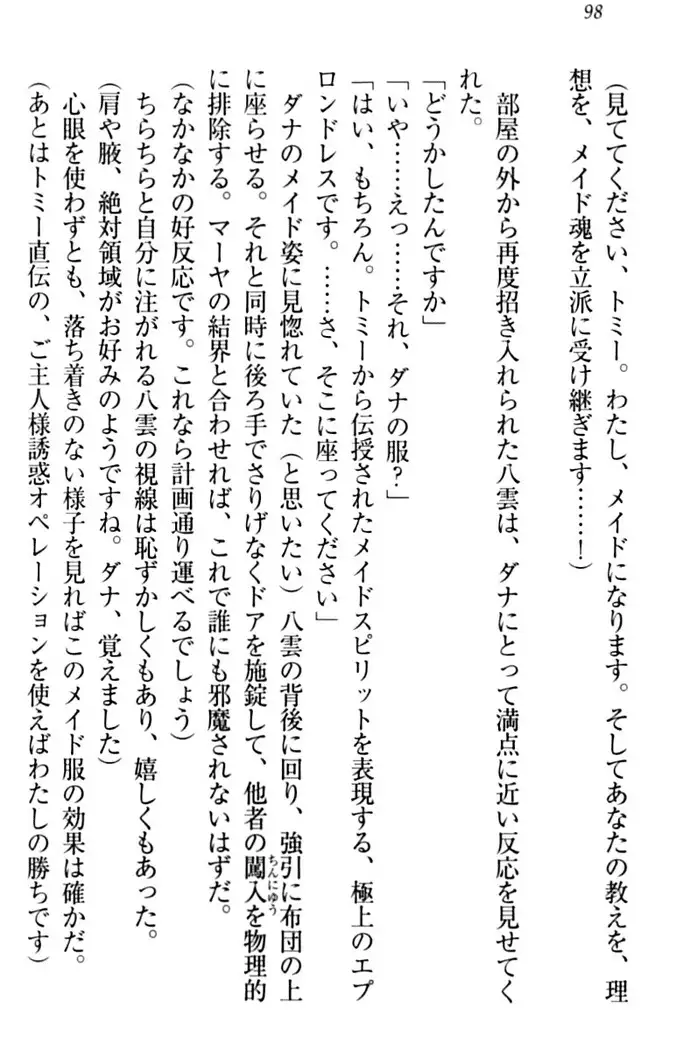 98
(見ててください、トミー。わたし、メイドになります。そしてあなたの教えを、理
想を、メイド魂を立派に受け継ぎます……！)
部屋の外から再度招き入れられた八雲は、ダナにとって満点に近い反応を見せてく
れた。
「どうかしたんですか」
「いや……えっ……それ、ダナの服？」
「はい、もちろん。トミーから伝授されたメイドスピリットを表現する、極上のエプ
ロンドレスです。……さ、そこに座ってください」
ダナのメイド姿に見惚れていた(と思いたい)八雲の背後に回り、強引に布団の上
に座らせる。それと同時に後ろ手でさりげなくドアを施錠して、他者の闖入を物理的
ちんにゆう
に排除する。マーヤの結界と合わせれば、これで誰にも邪魔されないはずだ。
(なかなかの好反応です。これなら計画通り運べるでしょう)
ちらちらと自分に注がれる八雲の視線は恥ずかしくもあり、嬉しくもあった。
(肩や腋、絶対領域がお好みのようですね。ダナ、覚えました)
心眼を使わずとも、落ち着きのない様子を見ればこのメイド服の効果は確かだ。
(あとはトミー直伝の、ご主人様誘惑オペレーションを使えばわたしの勝ちです)